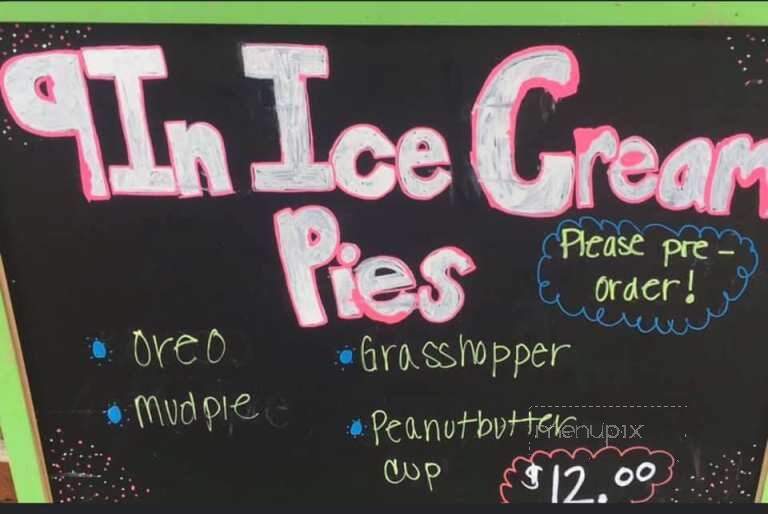 9In Ice Cream
Pies
Please pre-
order!
Oreo
Grasshopper
Mudpie
Peanutbutter
cup
menupix
$12.00